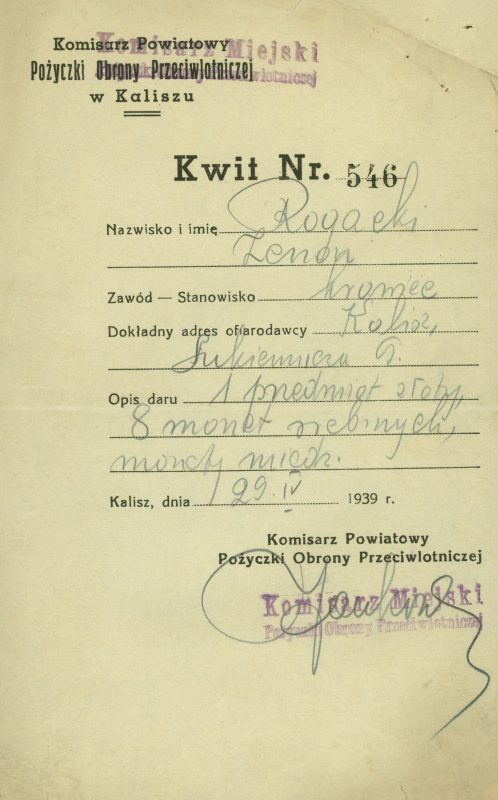 Komisarz Powiatowy
Komisarz Miejski
Pożyczki Obrony Przeciwlotniczej
Pożyczki Obrony Przeciwlotniczej
w Kaliszu
Kwit Nr. 546
Nazwisko i imię Rogacki
Zenon
Zawód — Stanowisko krawiec
Dokładny adres ofiarodawcy Kalisz,
Sukiennicza 6.
Opis daru 1 przedmiot złoty,
8 monet srebrnych,
monety miedz.
Kalisz, dnia 29. IV 1939 r.
Komisarz Powiatowy
Pożyczki Obrony Przeciwlotniczej
Komisarz Miejski
Pożyczki Obrony Przeciwlotniczej